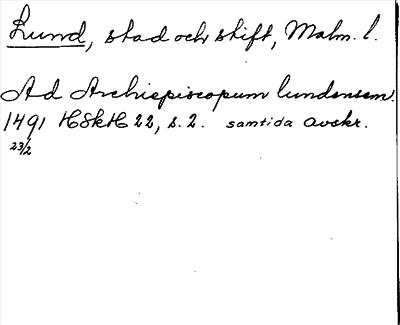 Lund, stad och stift, Malm. l.
Ad Archiepiscopum lundensem.
1491 HSkH 22, s. 2. samtida avskr.
23/2